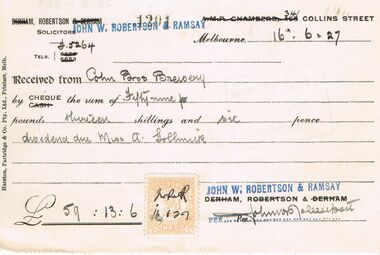 DERHAM, ROBERTSON & DERHAM JOHN W. ROBERTSON & RAMSAY 1201 A.M.P. CHAMBERS, 341 COLLINS STREET
SOLICITORS
TELS. F.5264
Melbourne, 16th. 6. 27
Received from Cohn Bros Brewery
by CHEQUE the sum of Fifty-nine
CASH
pounds thirteen shillings and six pence
dividend due Miss A.
£ 59 : 13 : 6
JOHN W. ROBERTSON & RAMSAY
DERHAM, ROBERTSON & DERHAM
PER Per
Harston, Partridge & Co. Pty. Ltd., Printers, Melb.